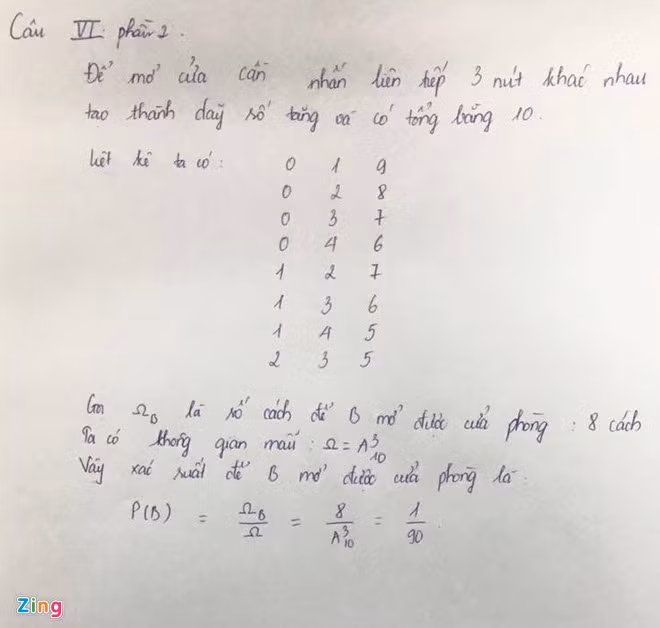 Câu VI. phần 2.
Để mở cửa cần nhấn liên tiếp 3 nút khác nhau
tạo thành dãy số tăng và có tổng bằng 10.
Liệt kê ta có: 0 1 9
0 2 8
0 3 7
0 4 6
1 2 7
1 3 6
1 4 5
2 3 5
Gọi Ω_B là số cách để B mở được cửa phòng : 8 cách
Ta có không gian mẫu : Ω = A³₁₀
Vậy xác suất để B mở được cửa phòng là
P(B) = Ω_B/Ω = 8/A³₁₀ = 1/90.
Zing